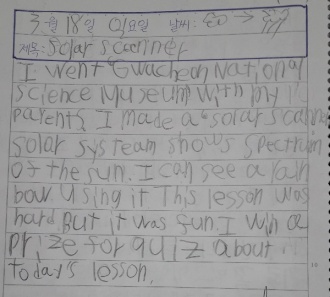 3월 18일 일요일 날씨:
제목: Solar scanner
I went Gwacheon National
science Museum with my
parents. I made a "solar scanne
solar systeam shows spectrum
of the sun. I can see a rain
bow using it This lesson was
hard But it was fun. I win a
prize for quiz about
today's lesson.